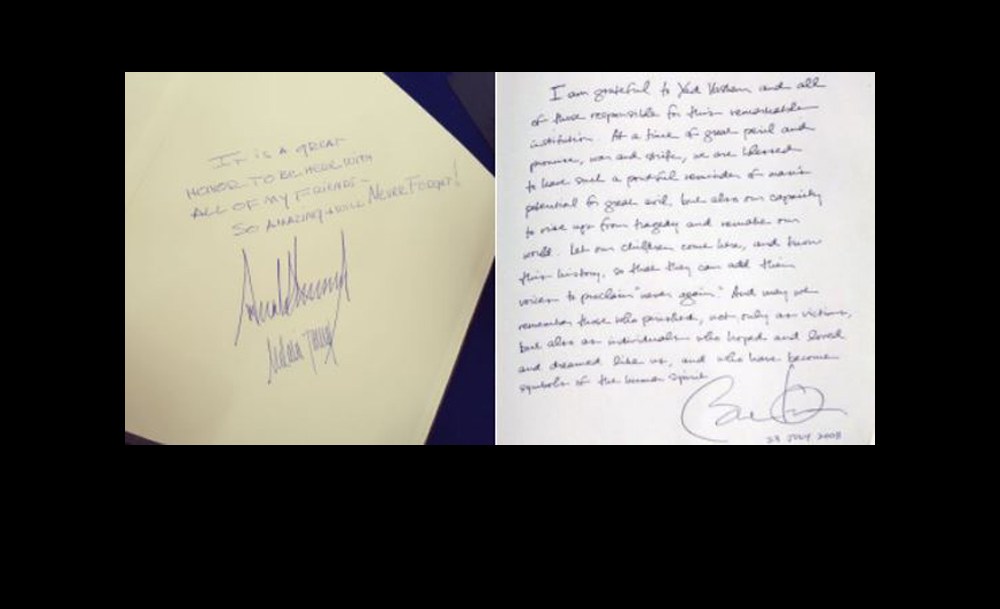 IT IS A GREAT
HONOR TO BE HERE WITH
ALL OF MY FRIENDS -
SO AMAZING + WILL NEVER FORGET!
Melania Trump
I am grateful to Yad Vashem and all
of those responsible for this remarkable
institution. At a time of great peril and
promise, war and strife, we are blessed
to have such a powerful reminder of man's
potential for great evil, but also our capacity
to rise up from tragedy and remake our
world. Let our children come here, and know
this history, so that they can add their
voices to proclaim "never again." And may we
remember those who perished, not only as victims,
but also as individuals who hoped and loved
and dreamed like us, and who have become
symbols of the human spirit.
23 JULY 2008